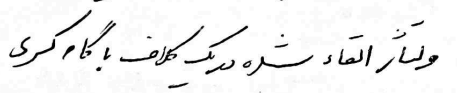 ولتاژ القاء شده در یک کلاف با گام کسری